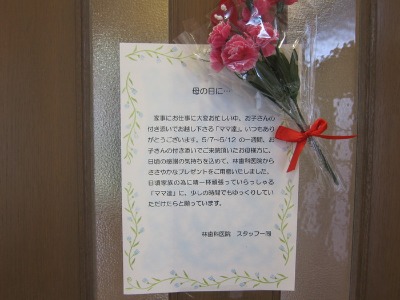 母の日に…
家事にお仕事に大変お忙しい中、お子さんの
付き添いでお越し下さる「ママ達」、いつもあり
がとうございます。5/7～5/12 の一週間、お
子さんの付き添いでご来院頂いたお母様方に、
日頃の感謝の気持ちを込めて、林歯科医院から
ささやかなプレゼントをご用意いたしました。
日頃家族の為に精一杯頑張っていらっしゃる
「ママ達」に、少しの時間でもゆっくりしてい
ただけたらと願っています。
林歯科医院　スタッフ一同